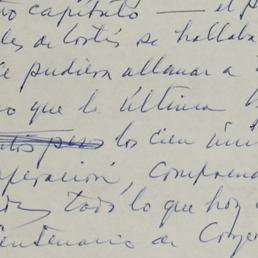 capítulo — el p
les de Cortés se hallaba
pudiera allanar a
que la última
los cien
peración, comprend
todo lo que hoy
entenario de Conq